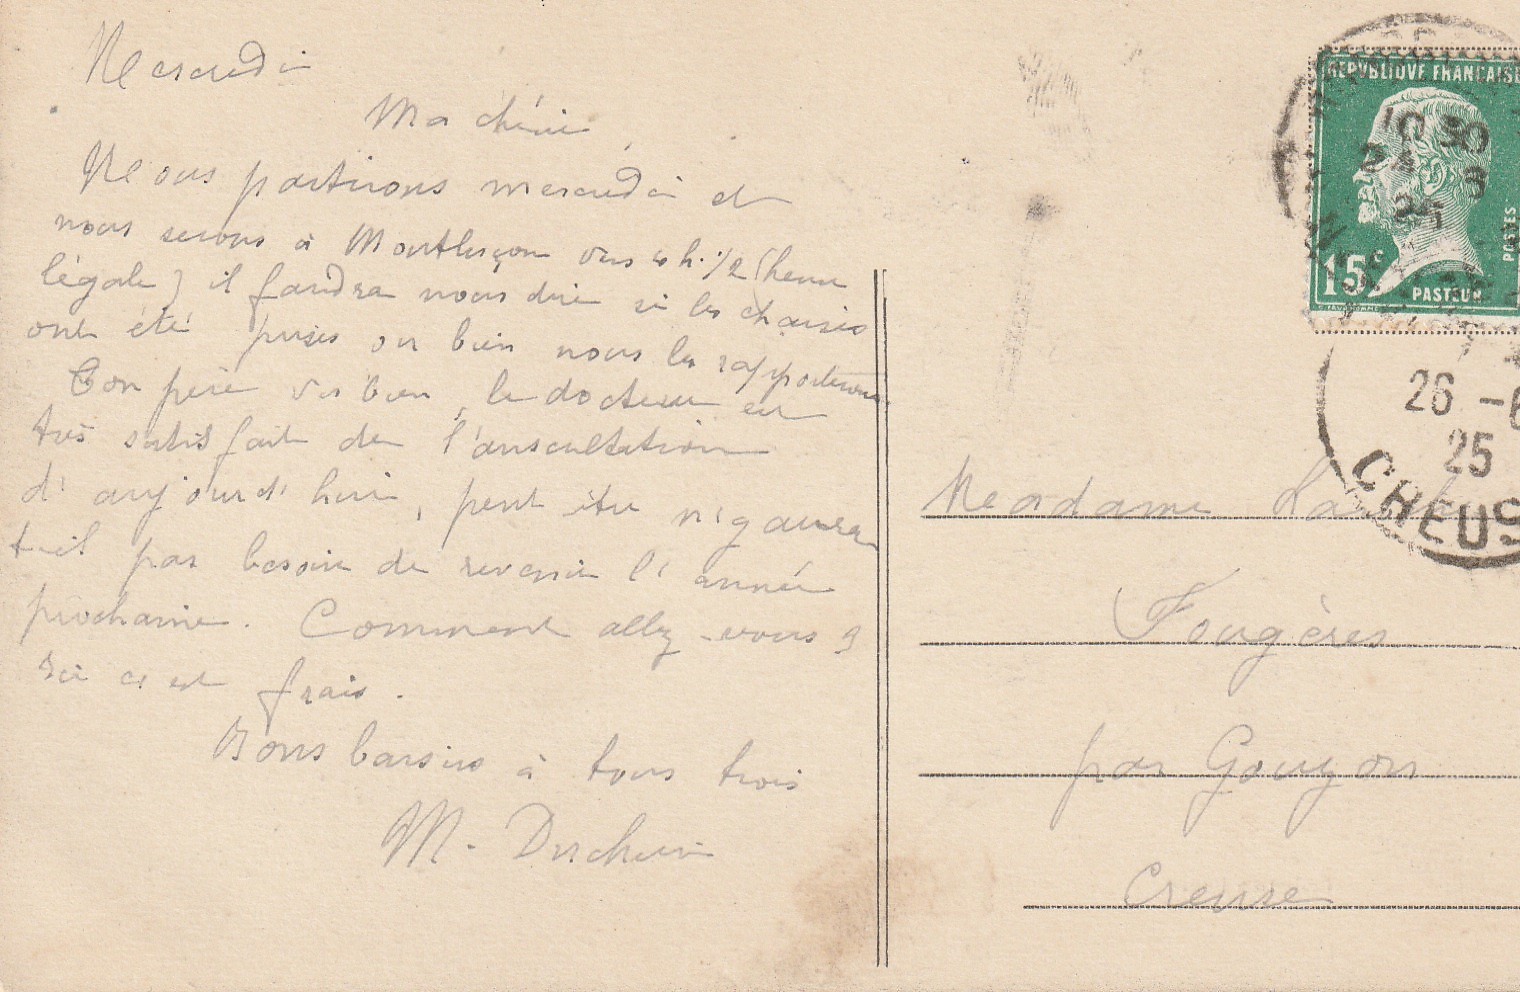 Mercredi
Ma chérie
Nous partirons mercredi et
nous serons à Montluçon vers 4 h. 1/2 (heure
légale) il faudra nous dire si les chaises
ont été prises ou bien nous les rapporterons
Ton père va bien, le docteur est
très satisfait de l'auscultation
d'aujourd'hui, peut être n'y aura
t-il pas besoin de revenir l'année
prochaine. Comment allez-vous ?
Ici c'est frais.
Bons baisers à tous trois
M.
REPUBLIQUE FRANÇAISE
POSTES
15c
PASTEUR
10 30
24 6
25
26 - 6
25
CREUS
Madame
Fougères
par Gouzon
Creuse